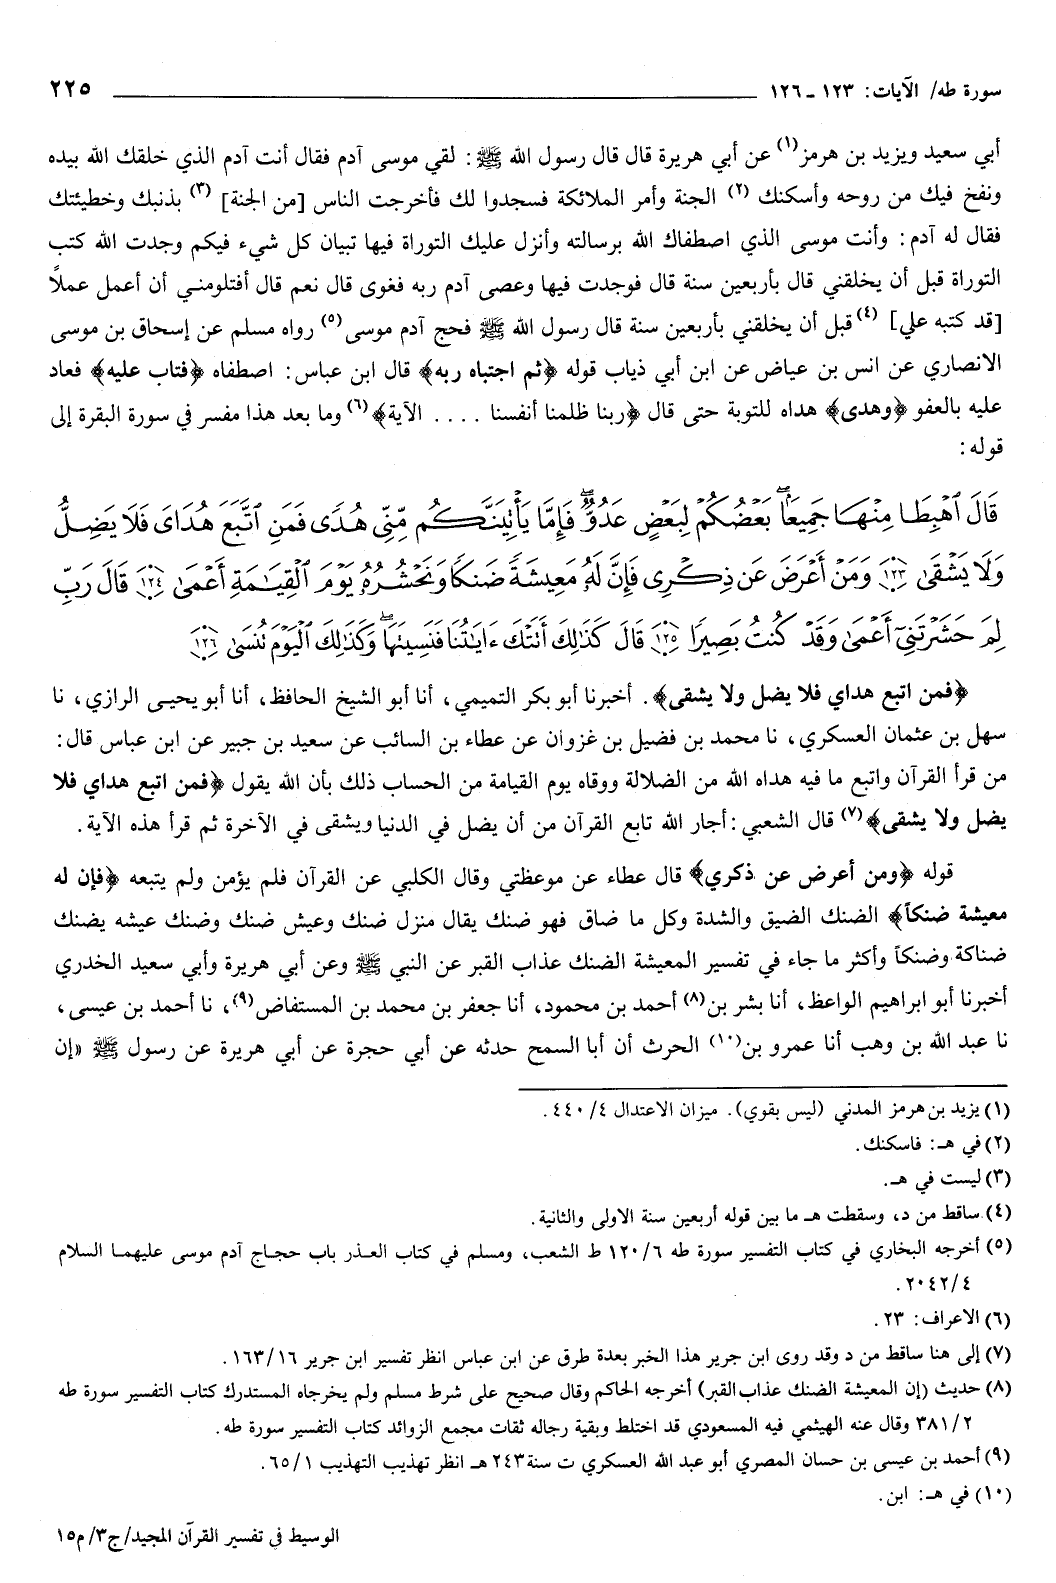 سورة طه/ الآيات: ١٢٣ ـ ١٢٦ ٢٢٥
أبي سعيد ويزيد بن هرمز(١) عن أبي هريرة قال قال رسول الله ﷺ: لقي موسى آدم فقال أنت آدم الذي خلقك الله بيده
ونفخ فيك من روحه وأسكنك (٢) الجنة وأمر الملائكة فسجدوا لك فأخرجت الناس [من الجنة] (٣) بذنبك وخطيئتك
فقال له آدم: وأنت موسى الذي اصطفاك الله برسالته وأنزل عليك التوراة فيها تبيان كل شيء فيكم وجدت الله كتب
التوراة قبل أن يخلقني قال بأربعين سنة قال فوجدت فيها وعصى آدم ربه فغوى قال نعم قال أفتلومنـي أن أعمل عملاً
[قد كتبه علي] (٤) قبل أن يخلقني بأربعين سنة قال رسول الله ﷺ فحج آدم موسى(٥) رواه مسلم عن إسحاق بن موسى
الانصاري عن انس بن عياض عن ابن أبي ذياب قوله ﴿ثم اجتباه ربه﴾ قال ابن عباس: اصطفاه ﴿فتاب عليه﴾ فعاد
عليه بالعفو ﴿وهدى﴾ هداه للتوبة حتى قال ﴿ربنا ظلمنا أنفسنا .... الآية﴾(٦) وما بعد هذا مفسر في سورة البقرة إلى
قوله:
قَالَ ٱهْبِطَا مِنْهَا جَمِيعًۢاۖ بَعْضُكُمْ لِبَعْضٍ عَدُوٌّۖ فَإِمَّا يَأْتِيَنَّكُم مِّنِّى هُدًى فَمَنِ ٱتَّبَعَ هُدَاىَ فَلَا يَضِلُّ
وَلَا يَشْقَىٰ ﴿١٢٣﴾ وَمَنْ أَعْرَضَ عَن ذِكْرِى فَإِنَّ لَهُۥ مَعِيشَةً ضَنكًا وَنَحْشُرُهُۥ يَوْمَ ٱلْقِيَـٰمَةِ أَعْمَىٰ ﴿١٢٤﴾ قَالَ رَبِّ
لِمَ حَشَرْتَنِىٓ أَعْمَىٰ وَقَدْ كُنتُ بَصِيرًا ﴿١٢٥﴾ قَالَ كَذَٰلِكَ أَتَتْكَ ءَايَـٰتُنَا فَنَسِيتَهَاۖ وَكَذَٰلِكَ ٱلْيَوْمَ تُنسَىٰ ﴿١٢٦﴾
﴿فمن اتبع هداي فلا يضل ولا يشقى﴾. أخبرنا أبو بكر التميمي، أنا أبو الشيخ الحافظ، أنا أبو يحيـى الرازي، نا
سهل بن عثمان العسكري، نا محمد بن فضيل بن غزوان عن عطاء بن السائب عن سعيد بن جبير عن ابن عباس قال:
من قرأ القرآن واتبع ما فيه هداه الله من الضلالة ووقاه يوم القيامة من الحساب ذلك بأن الله يقول ﴿فمن اتبع هداي فلا
يضل ولا يشقى﴾(٧) قال الشعبي: أجار الله تابع القرآن من أن يضل في الدنيا ويشقى في الآخرة ثم قرأ هذه الآية.
قوله ﴿ومن أعرض عن ذكري﴾ قال عطاء عن موعظتي وقال الكلبي عن القرآن فلم يؤمن ولم يتبعه ﴿فإن له
معيشة ضنكاً﴾ الضنك الضيق والشدة وكل ما ضاق فهو ضنك يقال منزل ضنك وعيش ضنك وضنك عيشه يضنك
ضناكة وضنكاً وأكثر ما جاء في تفسير المعيشة الضنك عذاب القبر عن النبي ﷺ وعن أبي هريرة وأبي سعيد الخدري
أخبرنا أبو ابراهيم الواعظ، أنا بشر بن(٨) أحمد بن محمود، أنا جعفر بن محمد بن المستفاض(٩)، نا أحمد بن عيسى،
نا عبد الله بن وهب أنا عمرو بن(١٠) الحرث أن أبا السمح حدثه عن أبي حجرة عن أبي هريرة عن رسول ﷺ «إن
(١) يزيد بن هرمز المدني (ليس بقوي). ميزان الاعتدال ٤/ ٤٤٠.
(٢) في هـ: فاسكنك.
(٣) ليست في هـ.
(٤) ساقط من د، وسقطت هـ ما بين قوله أربعين سنة الاولى والثانية.
(٥) أخرجه البخاري في كتاب التفسير سورة طه ٦/ ١٢٠ ط الشعب، ومسلم في كتاب العـذر باب حجـاج آدم موسى عليهمـا السلام
٤/ ٢٠٤٢.
(٦) الاعراف: ٢٣.
(٧) إلى هنا ساقط من د وقد روى ابن جرير هذا الخبر بعدة طرق عن ابن عباس انظر تفسير ابن جرير ١٦/ ١٦٣.
(٨) حديث (إن المعيشة الضنك عذاب القبر) أخرجه الحاكم وقال صحيح على شرط مسلم ولم يخرجاه المستدرك كتاب التفسير سورة طه
٢/ ٣٨١ وقال عنه الهيثمي فيه المسعودي قد اختلط وبقية رجاله ثقات مجمع الزوائد كتاب التفسير سورة طه.
(٩) أحمد بن عيسى بن حسان المصري أبو عبد الله العسكري ت سنة ٢٤٣ هـ انظر تهذيب التهذيب ١/ ٦٥.
(١٠) في هـ: ابن.
الوسيط في تفسير القرآن المجيد/ ج٣/ م١٥